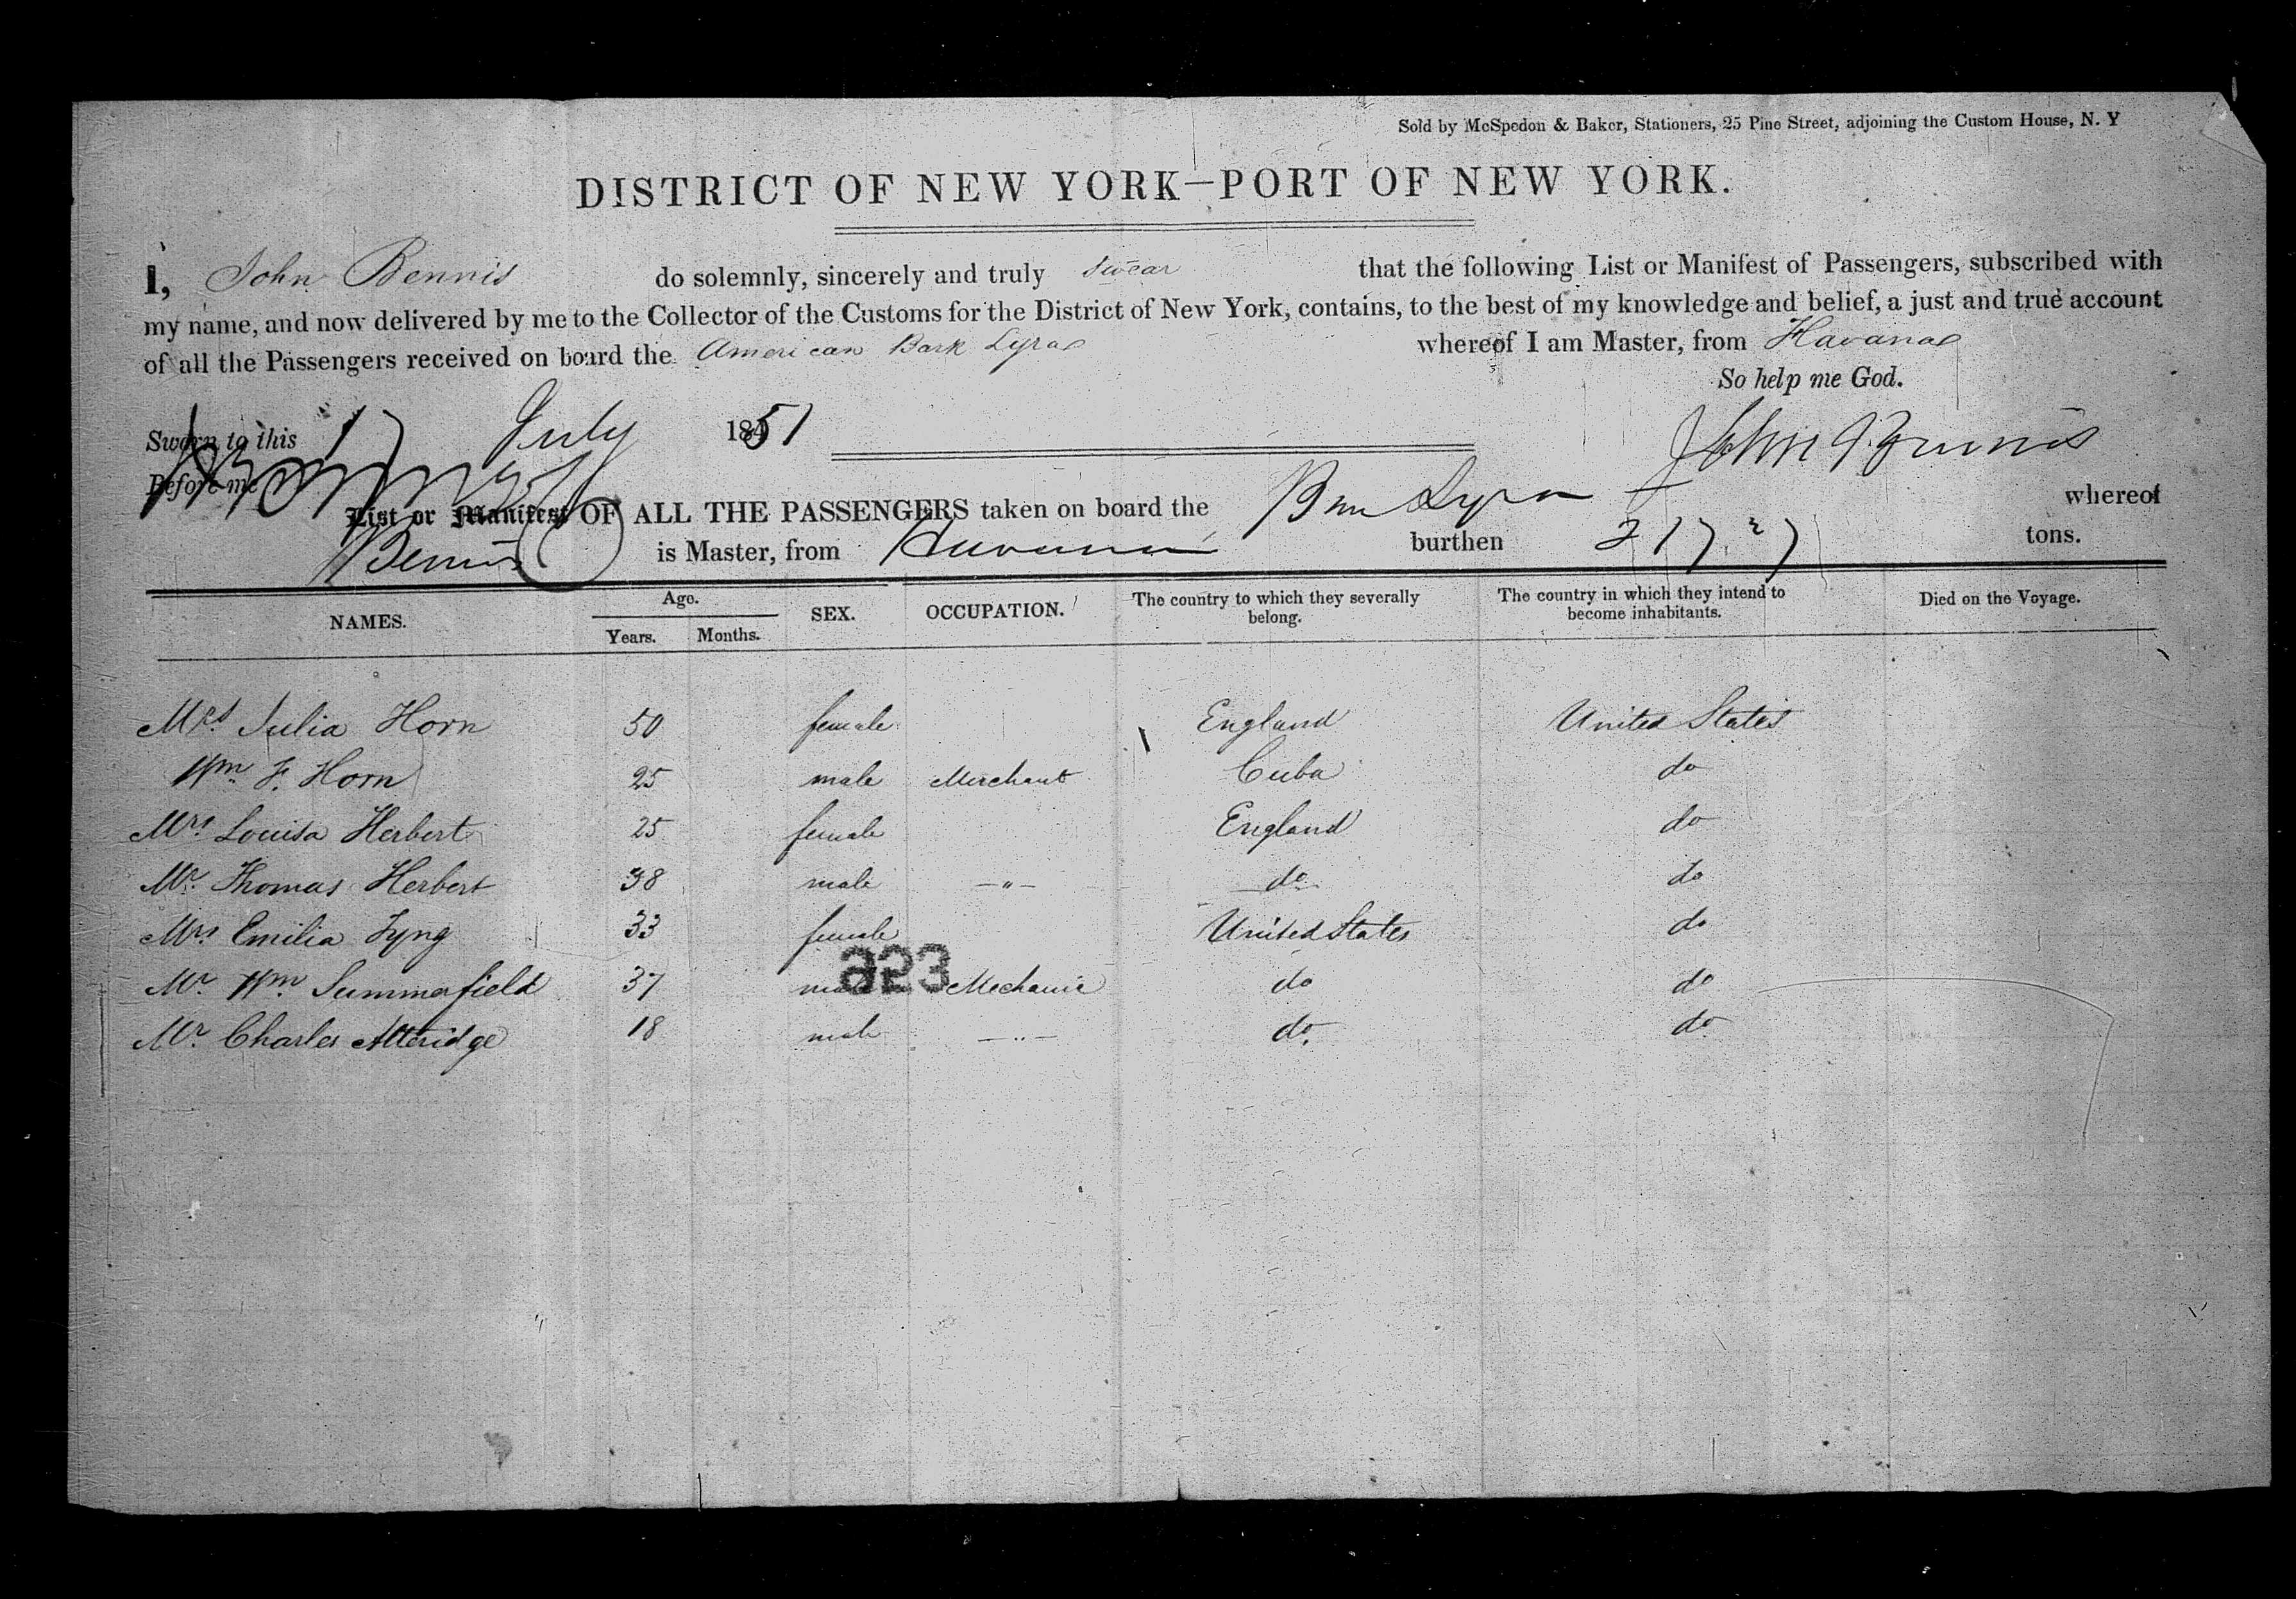 Sold by McSpedon & Baker, Stationers, 25 Pine Street, adjoining the Custom House, N. Y
DISTRICT OF NEW YORK—PORT OF NEW YORK.
I, John Bennis do solemnly, sincerely and truly swear that the following List or Manifest of Passengers, subscribed with
my name, and now delivered by me to the Collector of the Customs for the District of New York, contains, to the best of my knowledge and belief, a just and true account
of all the Passengers received on board the American Bark Lyra whereof I am Master, from Havana
So help me God.
Sworn to this 17 July 1851
Before me
List or Manifest OF ALL THE PASSENGERS taken on board the Lyra whereof
Bennis is Master, from Havana burthen 217 tons.
NAMES. Age. Years. Months. SEX. OCCUPATION. The country to which they severally belong. The country in which they intend to become inhabitants. Died on the Voyage.
Mrs Julia Horn 50 female England United States
Wm F. Horn 25 male Merchant Cuba do
Mrs Louisa Herbert 25 female England do
Mr. Thomas Herbert 38 male —"— do do
Mrs Emilia Tyng 33 female United States do
Mr Wm Summerfield 37 male Mechanic do do
Mr Charles Atteridge 18 male —"— do. do
323